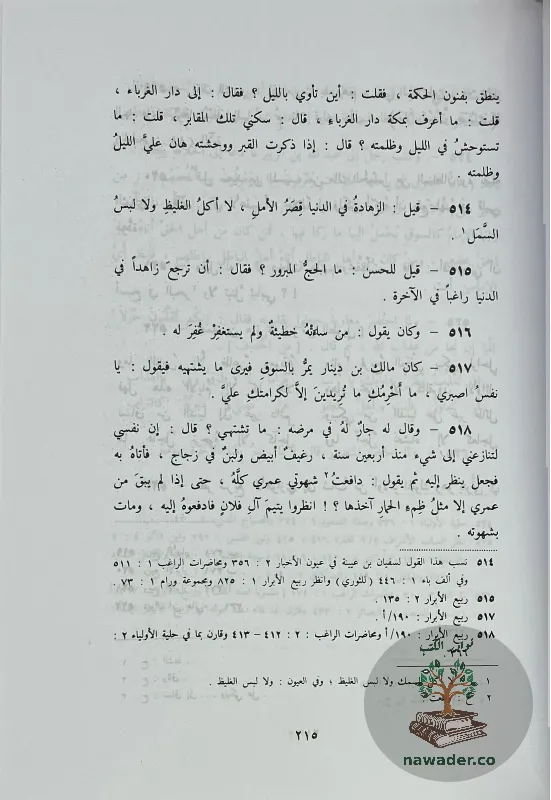 ينطق بفنون الحكمة ، فقلت : أين تأوي بالليل ؟ فقال : إلى دار الغرباء ،
قلت : ما أعرف بمكة دار الغرباء ، قال : سكني تلك المقابر ، قلت : ما
تستوحشُ في الليل وظلمته ؟ قال : إذا ذكرت القبر ووحشته هان عليَّ الليلُ
وظلمته .
٥١٤ – قيل : الزهادةُ في الدنيا قِصَرُ الأملِ ، لا أكلُ الغليظِ ولا لبسُ
السَّمَل١ .
٥١٥ – قيل للحسن : ما الحجُّ المبرور ؟ فقال : أن ترجعَ زاهداً في
الدنيا راغباً في الآخرة .
٥١٦ – وكان يقول : من ساءَتْهُ خطيئةٌ ولم يستغفِرْ غُفِرَ له .
٥١٧ – كان مالك بن دينار يمرُّ بالسوقِ فيرى ما يشتهيه فيقول : يا
نفسُ اصبري ، ما أَحْرِمُكِ ما تُريدينَ إلاَّ لكرامتكِ عليَّ .
٥١٨ – وقال له جارٌ لهُ في مرضه : ما تشتهي ؟ قال : إن نفسي
لتنازعني إلى شيء منذ أربعين سنة ، رغيفٌ أبيض ولبنٌ في زجاج ، فأتاهُ به
فجعل ينظر إليه ثم يقول : دافعتُ٢ شهوتي عمري كلَّهُ ، حتى إذا لم يبقَ من
عمري إلا مثلُ ظِمءِ الحمار آخذها ؟ ! انظروا يتيمَ آلِ فلانٍ فادفعوهُ إليه ، ومات
بشهوته .
٥١٤ نسب هذا القول لسفيان بن عيينة في عيون الأخبار ٢ : ٣٥٦ ومحاضرات الراغب ١ : ٥١١
وفي ألف باء ١ : ٤٤٦ (للثوري) وانظر ربيع الأبرار ١ : ٨٢٥ ومجموعة ورام ١ : ٧٣ .
٥١٥ ربيع الأبرار ٢ : ١٣٥ .
٥١٧ ربيع الأبرار : ١٩٠/أ .
٥١٨ ربيع الأبرار : ١٩٠/أ ومحاضرات الراغب : ٢ : ٤١٢ – ٤١٣ وقارن بما في حلية الأولياء ٢ :
١ السمك ولا لبس الغليظ ؛ وفي العيون : ولا لبس الغليظ .
٢ ع :
نوادر الكتب
nawader.co
٢١٥